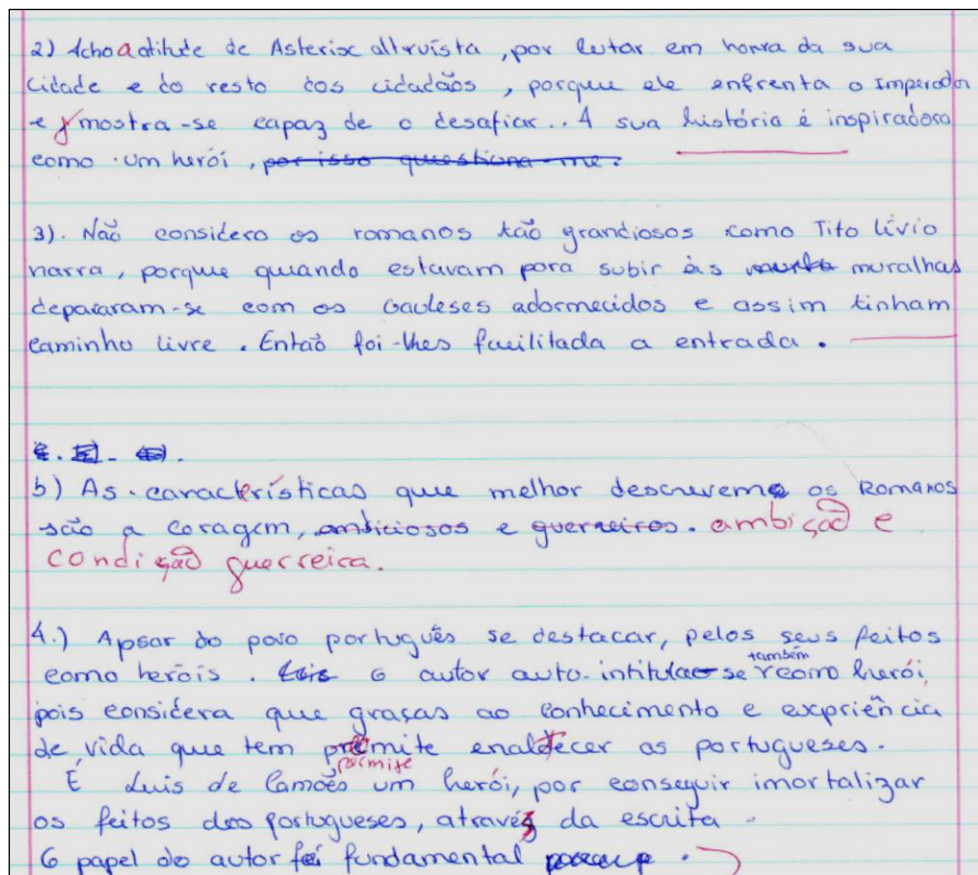 2) Acho a atitude de Asterix altruísta, por lutar em honra da sua
cidade e do resto dos cidadãos, porque ele enfrenta o Imperador
e mostra-se capaz de o desafiar.. A sua história é inspiradora
como um herói, por isso questiona-me.
3). Não considero os romanos tão grandiosos como Tito Lívio
narra, porque quando estavam para subir às muralhas
depararam-se com os Gauleses adormecidos e assim tinham
caminho livre. Então foi-lhes facilitada a entrada.
b) As características que melhor descrevem os Romanos
são a coragem, ambiciosos e guerreiros. ambição e
condição guerreira.
4.) Apsar do povo português se destacar, pelos seus feitos
como heróis. O autor auto-intitula-se também como herói,
pois considera que graças ao conhecimento e expriência
de vida que tem premite enaltecer os portugueses.
permite
É Luis de Camões um herói, por conseguir imortalizar
os feitos dos portugueses, através da escrita.
O papel do autor foi fundamental.